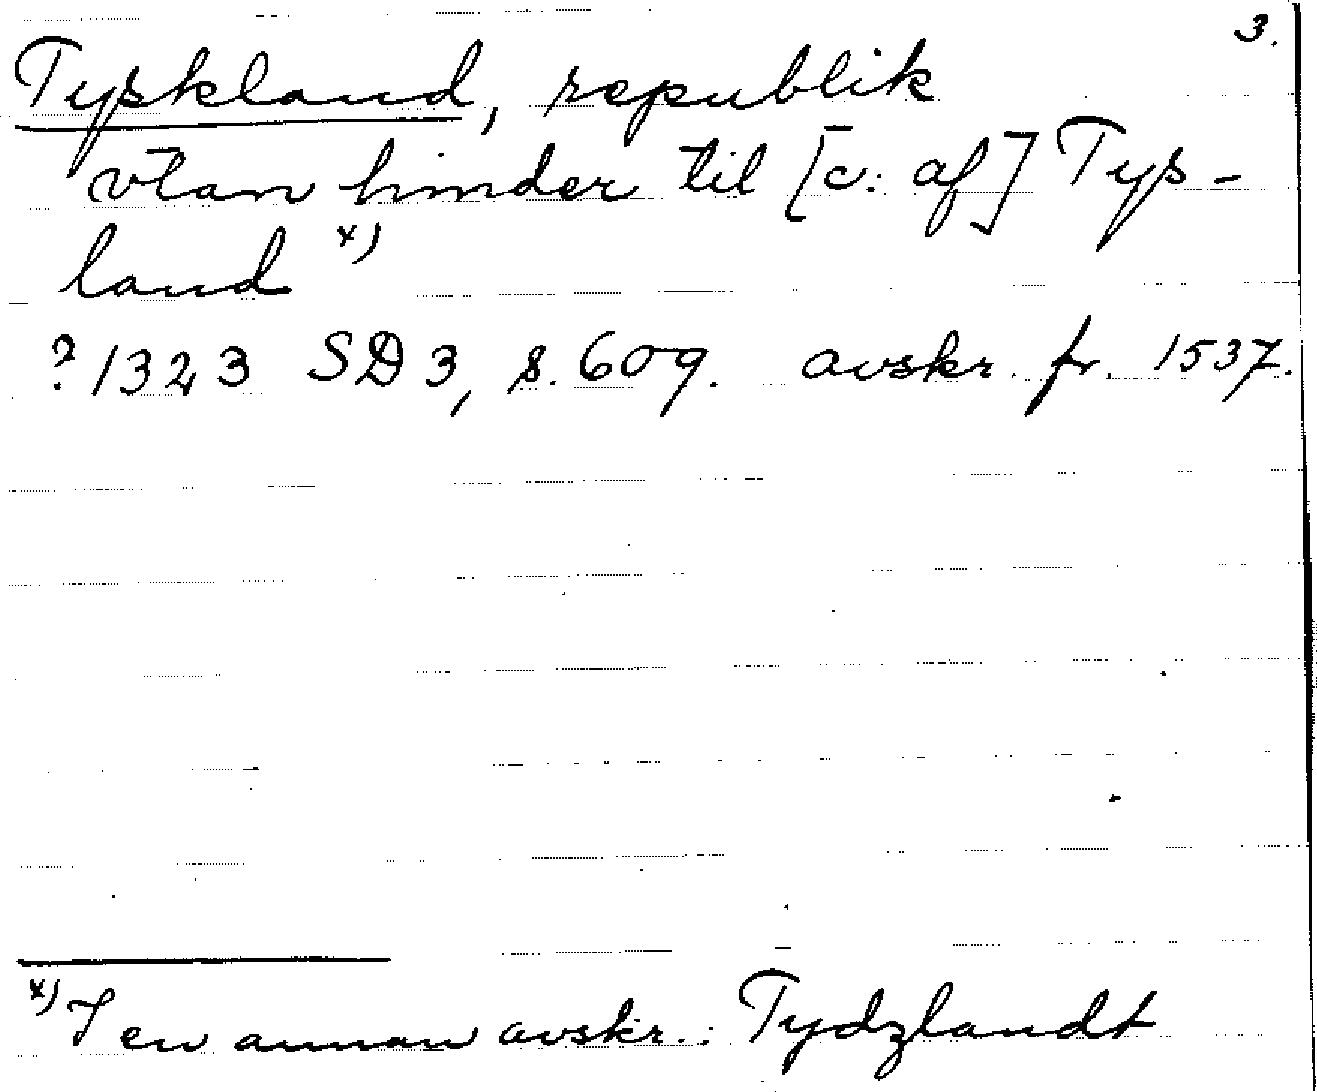 3.
Tyskland, republik
vtan hinder til [ɔ: af] Tys-
land x)
? 1323 SD 3, s. 609. avskr. fr. 1537.
x) I en annan avskr.: Tydzlandt